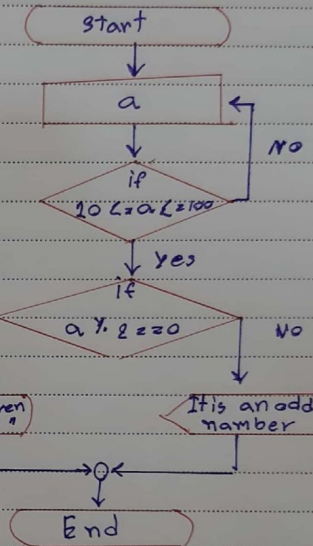 start
a
NO
if
10 <= a <= 100
yes
if
a % 2 == 0
NO
It is an odd
number
End